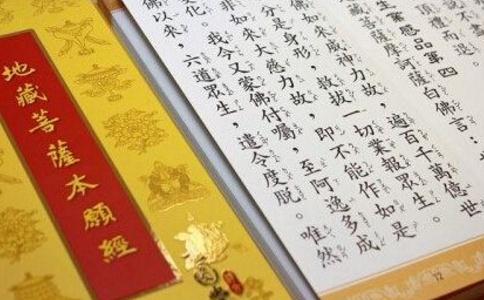 地藏菩薩本願經
頂禮而退。
生業感品第四
藏菩薩摩訶薩白佛言：
佛如來威神力故，遍百千萬億世
分是身形，救拔一切業報眾生。
非如來大慈力故，即不能作如是
化。我今又蒙佛付囑，至阿逸多成
佛以來，六道眾生，遣令度脫。唯然
12